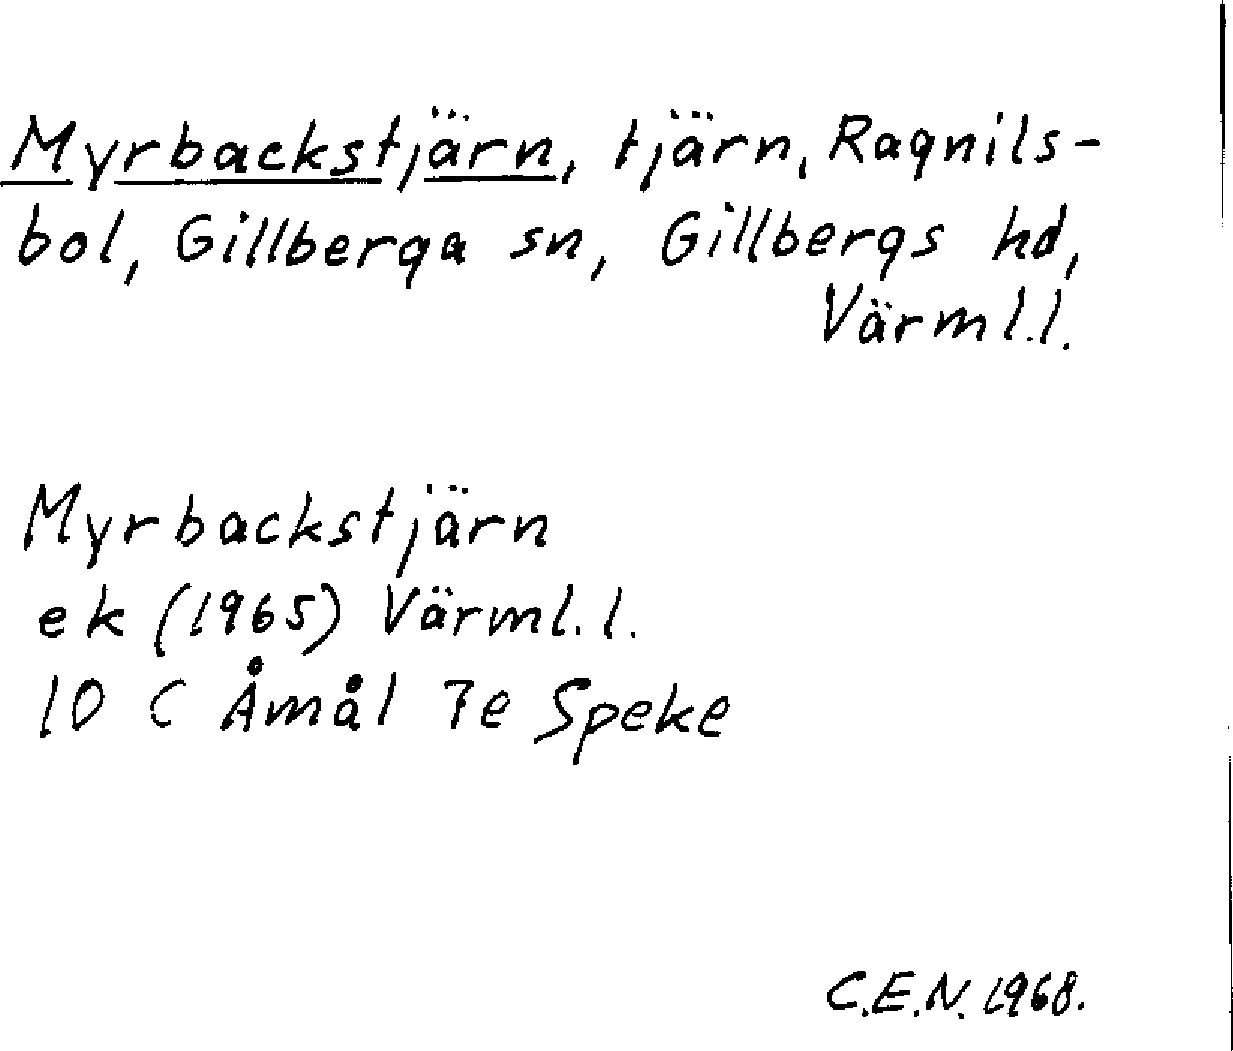 Myrbackstjärn, tjärn, Ragnils-
bol, Gillberga sn, Gillbergs hd,
Värml.l.
Myrbackstjärn
ek (1965) Värml.l.
10 C Åmål 7e Speke
C.E.N. 1968.